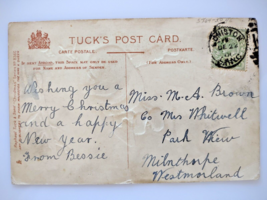 TUCK'S POST CARD.
CARTE POSTALE. POSTKARTE.
(FOR ADDRESS ONLY.)
Wishing you a
Merry Christmas
and a happy
New Year.
From Bessie
Miss M. A. Brown
Co Mrs Whitwell
Park View
Milnthorpe
Westmorland